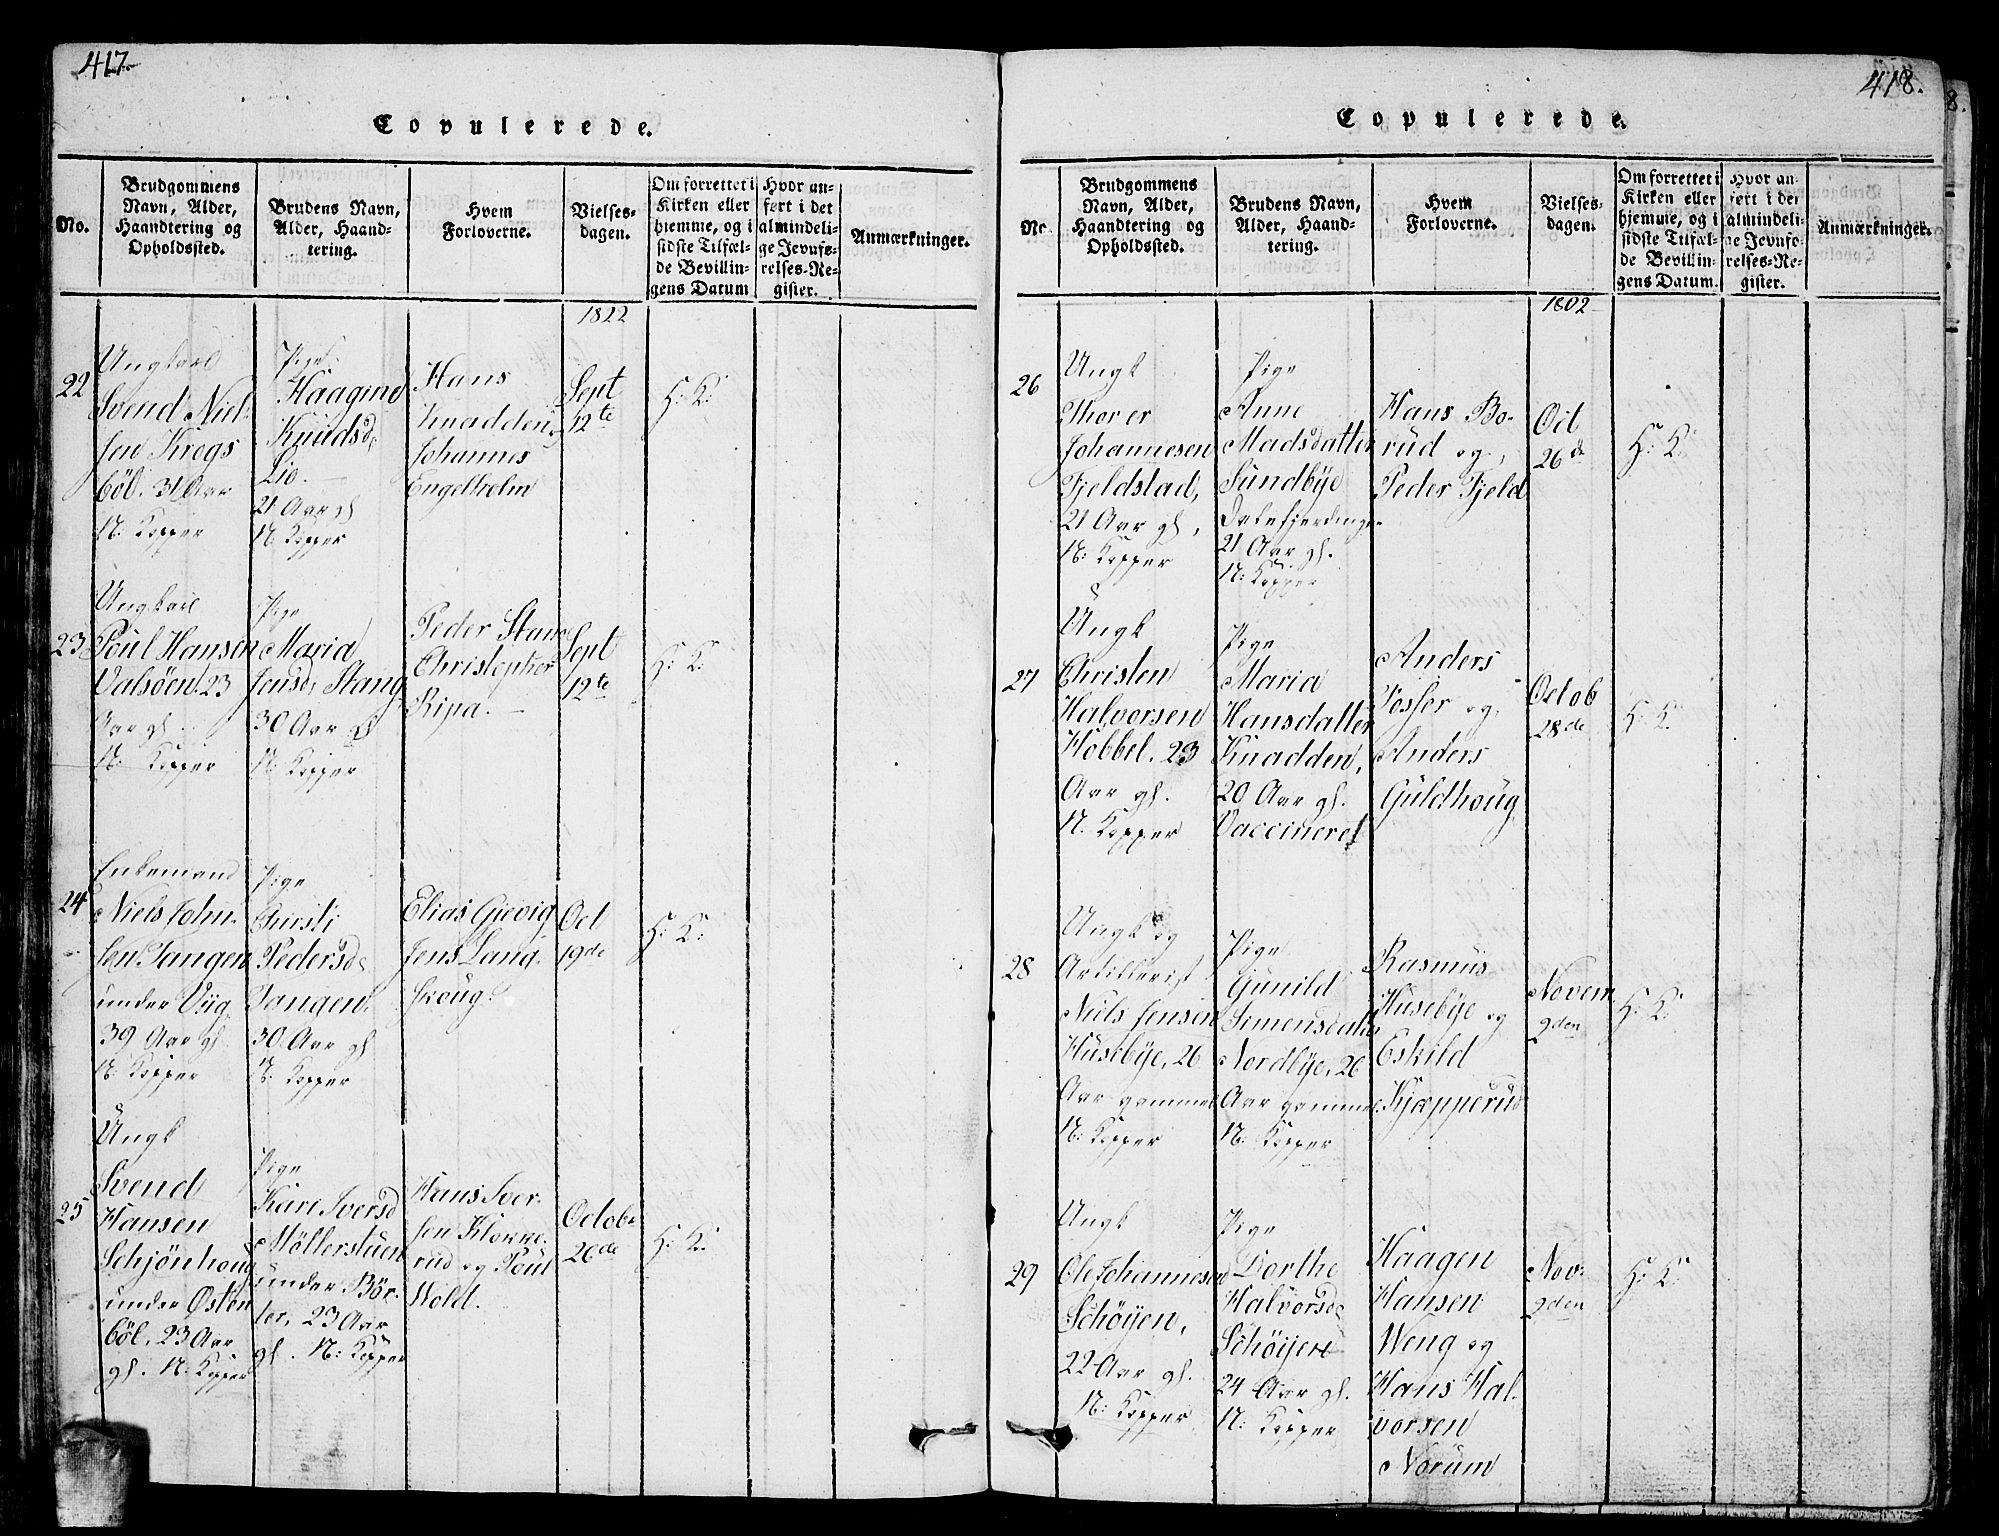 417
Copulerede.
No.
Brudgommens
Navn, Alder,
Haandtering og
Opholdssted.
Brudens Navn,
Alder, Haand-
tering.
Hvem
Forloverne.
Vielses-
dagen.
Om forrettet i
Kirken eller
hjemme, og i
sidste Tilfæl-
de Bevillin-
gens Datum
Hvor an-
ført i det
almindeli-
ge Jevnfø-
relses-Re-
gister.
Anmærkninger.
1822
22
Ungkarl
Svend Niel-
sen Krogs
böl. 31 Aar
N: Kopper
Pige
Haagine
Knudsd:
Lio.
21 Aar gl
N: Kopper
Hans
Knadden og
Johannes
Engelholm
Sept
12te
H: K:
23
Ungkarl
Poul Hansen
Valsöen. 23
Aar gl.
N: Kopper
Pige
Maria
Jensd: Stang
30 Aar gl
N: Kopper
Peder Stang
Christopher
Ripa.
Sept
12te
H: K:
24
Enkemand
Niels John-
sen Tangen
under Vüg
39 Aar gl
N: Kopper
Pige
Christi
Pedersd:
Tangen.
30 Aar gl
N: Kopper
Elias Gjevig
Jens Lang-
skoug.
Oct
19de
H: K:
25
Ungk
Svend
Hansen
Schjönhoug
under Østen
böl. 23 Aar
gl. N: Kopper
Pige
Kari Iversd
Möllerstuen
under Bör-
ter, 23 Aar
gl. N: Kopper
Hans Iver-
sen Klokke-
rud og Poul
Wold.
Octob:
26de
H: K:
418.
Copulerede.
Nr.
Brudgommens
Navn, Alder,
Haandtering og
Opholdssted.
Brudens Navn,
Alder, Haand-
tering.
Hvem
Forloverne.
Vielses-
dagen.
Om forrettet i
Kirken eller
hjemme, og i
sidste Tilfæl-
de Bevillin-
gens Datum.
Hvor an-
ført i det
almindeli-
ge Jevnfø-
relses-Re-
gister.
Anmærkninger.
1802
26
Ungk
Thorer
Johannesen
Fjeldstad,
21 Aar gl,
N: Kopper
Pige
Anne
Madsdatter
Sundbye
Dalefjerdingen
21 Aar gl.
N: Kopper
Hans Bo-
rud og,
Peder Fjeld
Oct
26de
H: K:
27
Ungk
Christen
Halvorsen
Hobbel. 23
Aar gl.
N. Kopper
Pige
Maria
Hansdatter
Knadden,
20 Aar gl.
Vaccineret
Anders
Fosser og,
Anders
Guldhoug
Octob
28de
H: K:
28
Ungk og
Artillerist
Niels Jensen
Husebye, 26
Aar gammel
N: Kopper
Pige
Gunild
Simensdatter
Nordbye, 26
Aar gammel.
N: Kopper
Rasmus
Husebye og
Eskild
Kjæpperud
Novem
9den
H: K:
29
Ungk
Ole Johannesen
Schöyen,
22 Aar gl.
N: Kopper
Pige
Dorthe
Halvorsd:
Schöyen
24 Aar gl.
N: Kopper
Haagen
Hansen
Weng og
Hans Hal-
vorsen
Norum
Nov:
9den
H: K:
8.